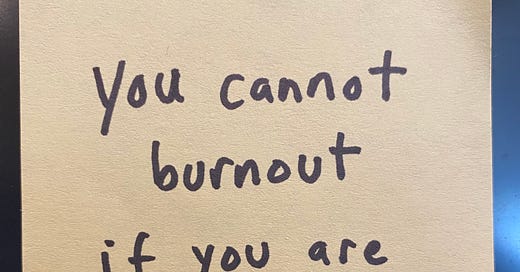 you cannot
burnout
if you are